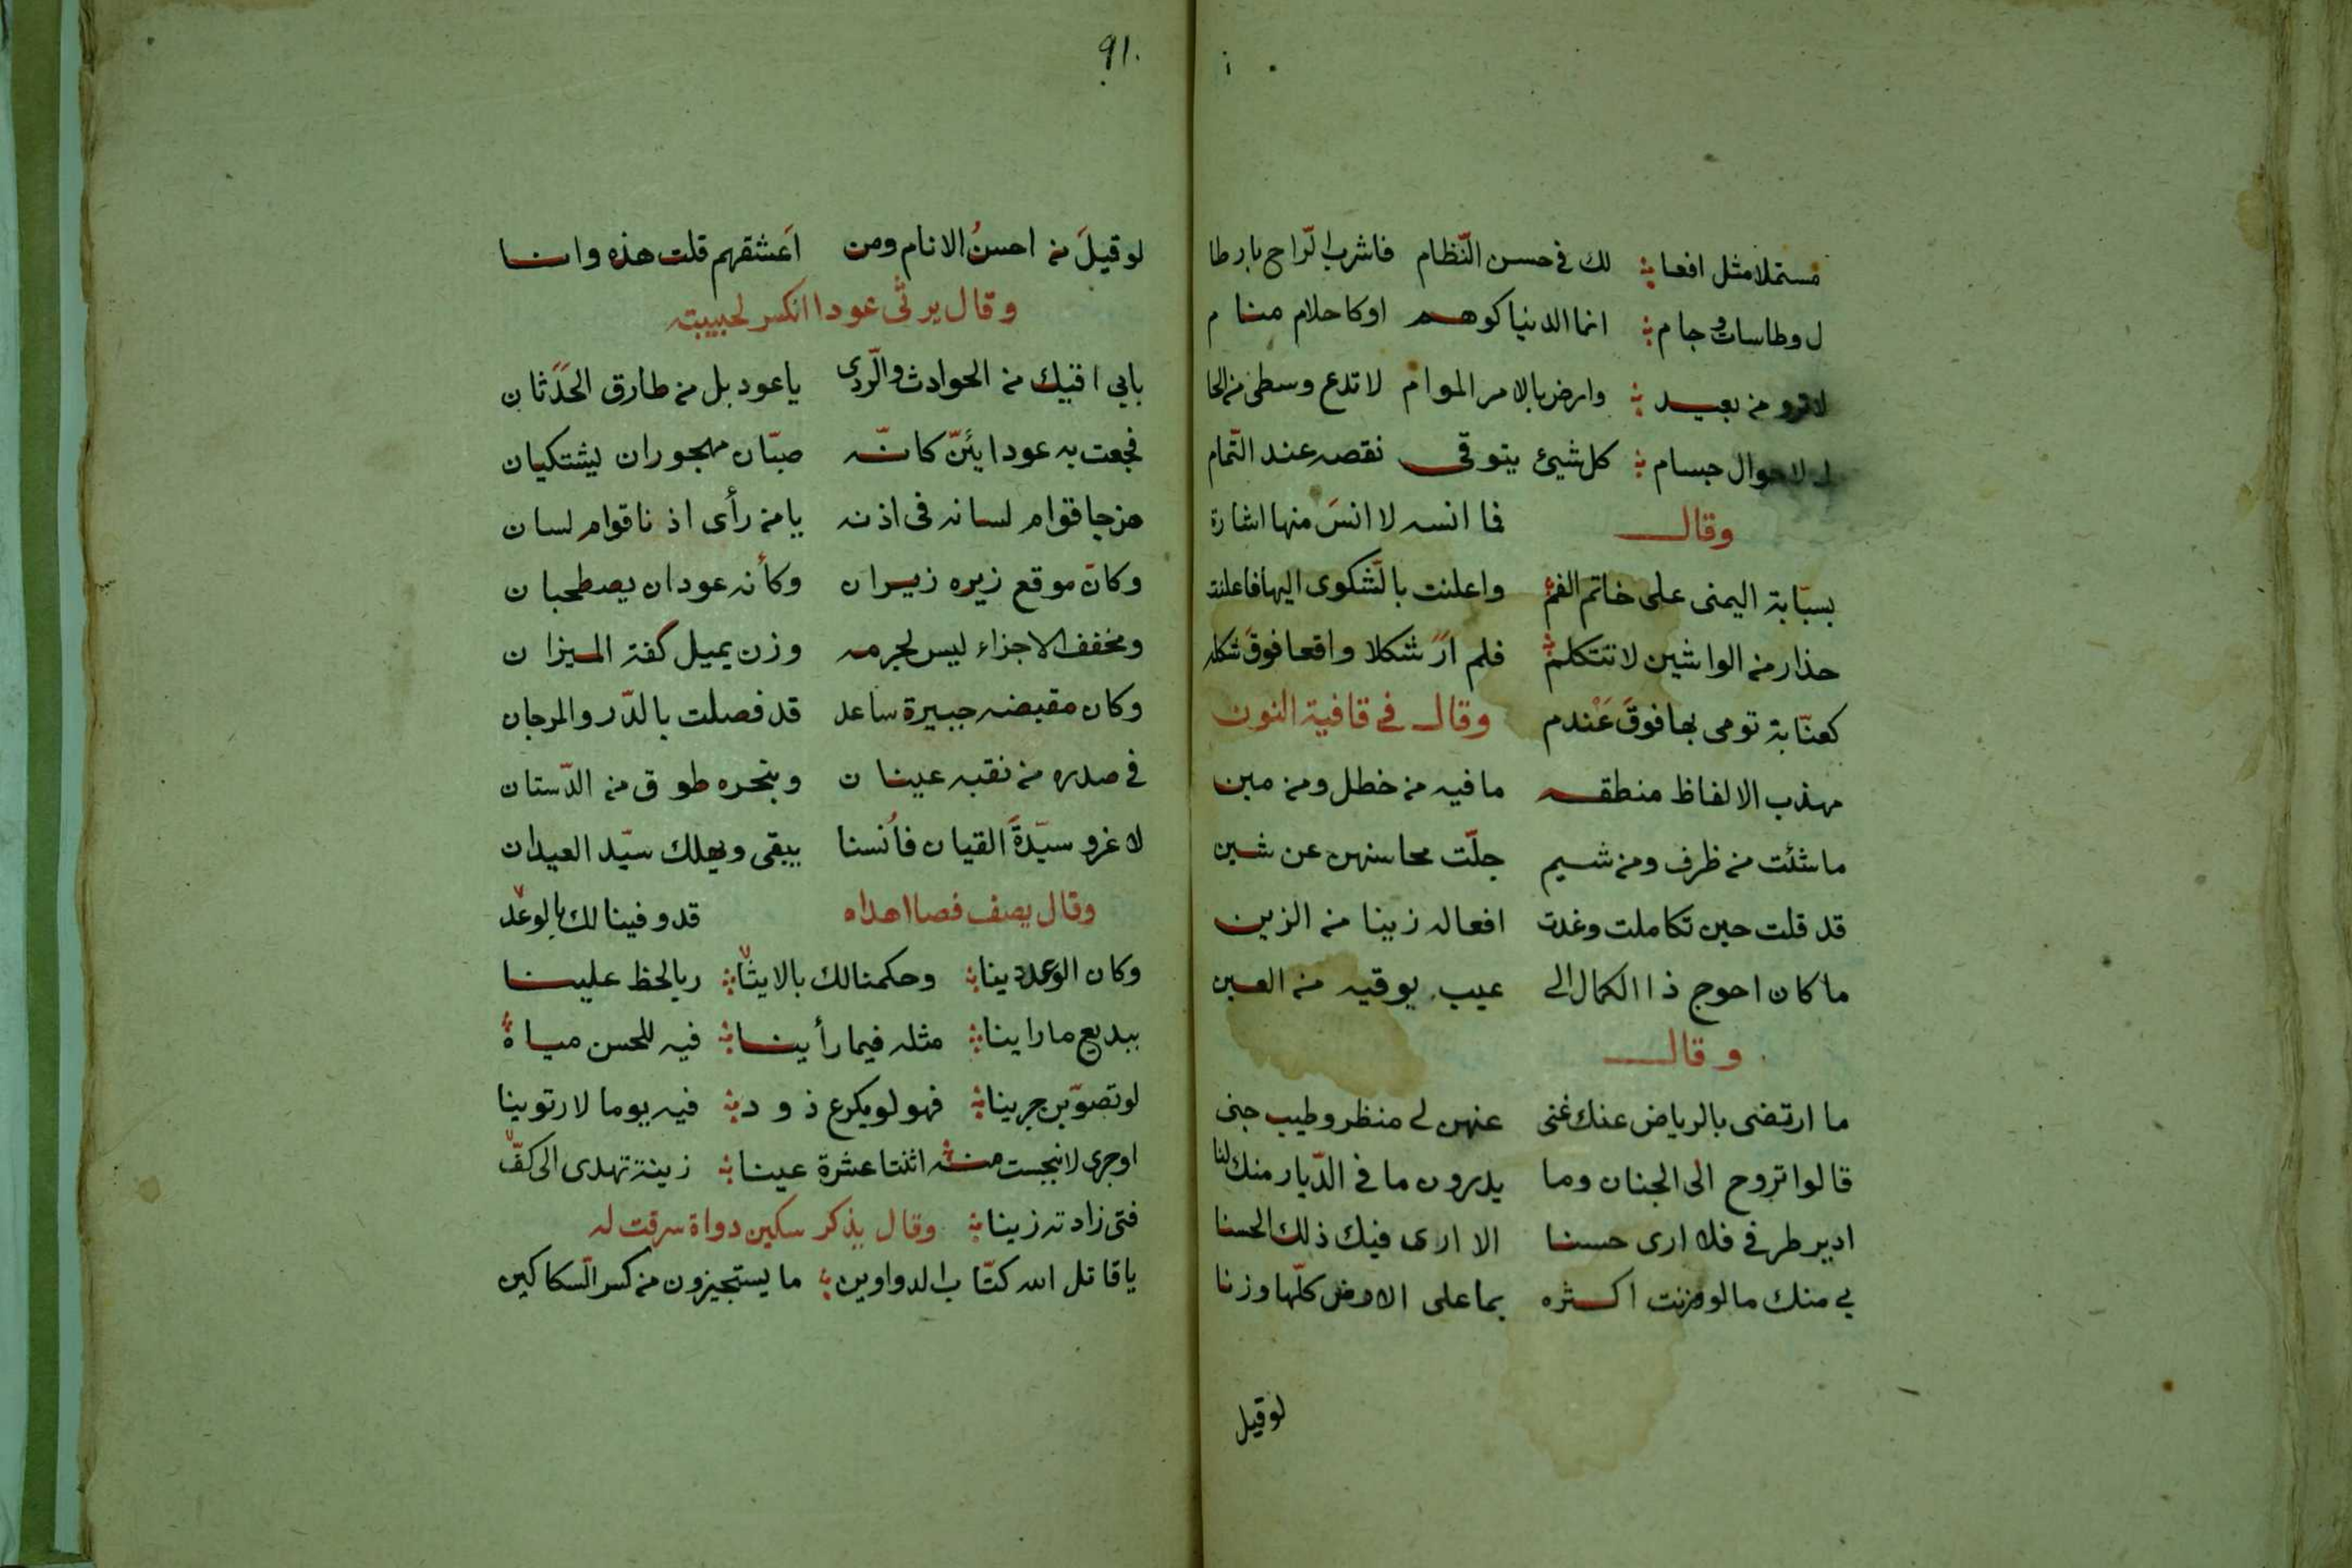 مستملا مثل افعا لك في حسن النّظام فاشرب الرّاح بارطا
ل وطاسات وجام انما الدنيا كوهم اوكاحلام منام
لا ترو من بعيد وارض بالامر الموام لا تدع وسطى من الحا
ل لاحوال جسام كل شيئ يتوقى نقصه عند التّمام
وقال فما انسه لا انسَ منها اشارة
بسبّابة اليمنى على خاتم الفم واعلنت بالشّكوى اليها فاعلنت
حذار من الواشين لا تتكلم فلم ارَ شكلا واقعا فوق شكله
كعنّابة تومى بها فوقَ عَنْدم وقال في قافية النون
مهذب الالفاظ منطقه ما فيه من خطل ومن مين
ما شئت من ظرف ومن شيم جلّت محاسنهن عن شين
قد قلت حين تكاملت وغدت افعاله زينا من الزين
ما كان احوج ذا الكمال الى عيب يوقيه من العين
وقال
ما ارتضى بالرياض عنك غنى عنهن لى منظر وطيب جنى
قالوا تروح الى الجنان وما يدرون ما في الدّيار منك لنا
ادير طرفي فلا ارى حسنا الا ارى فيك ذلك الحسنا
بي منك ما لو وزنت اكثره بما على الارض كلّها وزنا
لوقيل
٩١٠
لوقيلَ من احسنُ الانام ومن اَعشقهم قلت هذه وانا
وقال يرثى عودا انكسر لحبيبته
بابي اقيك من الحوادث والرّدى ياعود بل من طارق الحَدَثان
فجعت به عودا يئنّ كانّه صبّان مهجوران يشتكيان
هزجا قوام لسانه فى اذنه يا من رأى اذنا قوام لسان
وكانّ موقع زيره زيران وكأنه عودان يصطحبان
ومخفف الاجزاء ليس لجرمه وزن يميل كفة الميزان
وكان مقبضه جبيرة ساعد قد فصلت بالدّر والمرجان
في صدره من نقبه عينان وبنحره طوق من الدّستان
لا غرو سيّدةَ القيان فاُنسنا يبقى ويهلك سيّد العيدان
وقال يصف فصا اهداه قد وفينا لك بالوعد
وكان الوعد دينا وحكمنا لك بالايثا ر بالحظ علينا
ببديع ما راينا مثله فيما رأينا فيه للحسن مياهٌ
لو تصوّبن جرينا فهو لو يكرع ذود فيه يوما لارتوينا
اوجرى لانبجست منه اثنتا عشرة عينا زينة تهدى الى كفّ
فتى زادته زينا وقال يذكر سكين دواة سرقت له
ياقاتل الله كتّاب الدواوين ما يستجيزون من كسر السّكاكين